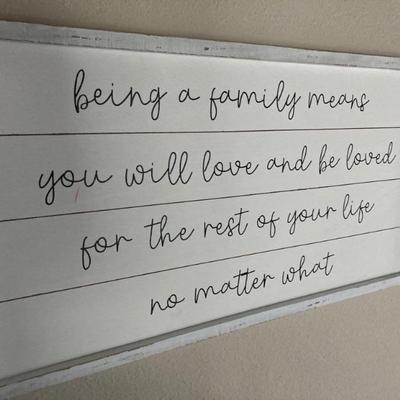 being a family means
you will love and be loved
for the rest of your life
no matter what